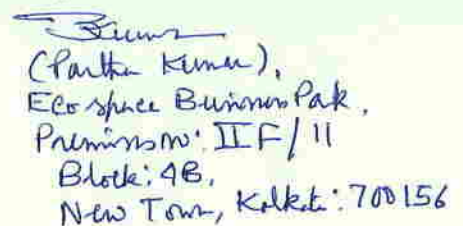 (Partha Kumar),
Ecospace Business Park,
Premises No: IIF/11
Block: 4B,
New Town, Kolkata: 700156